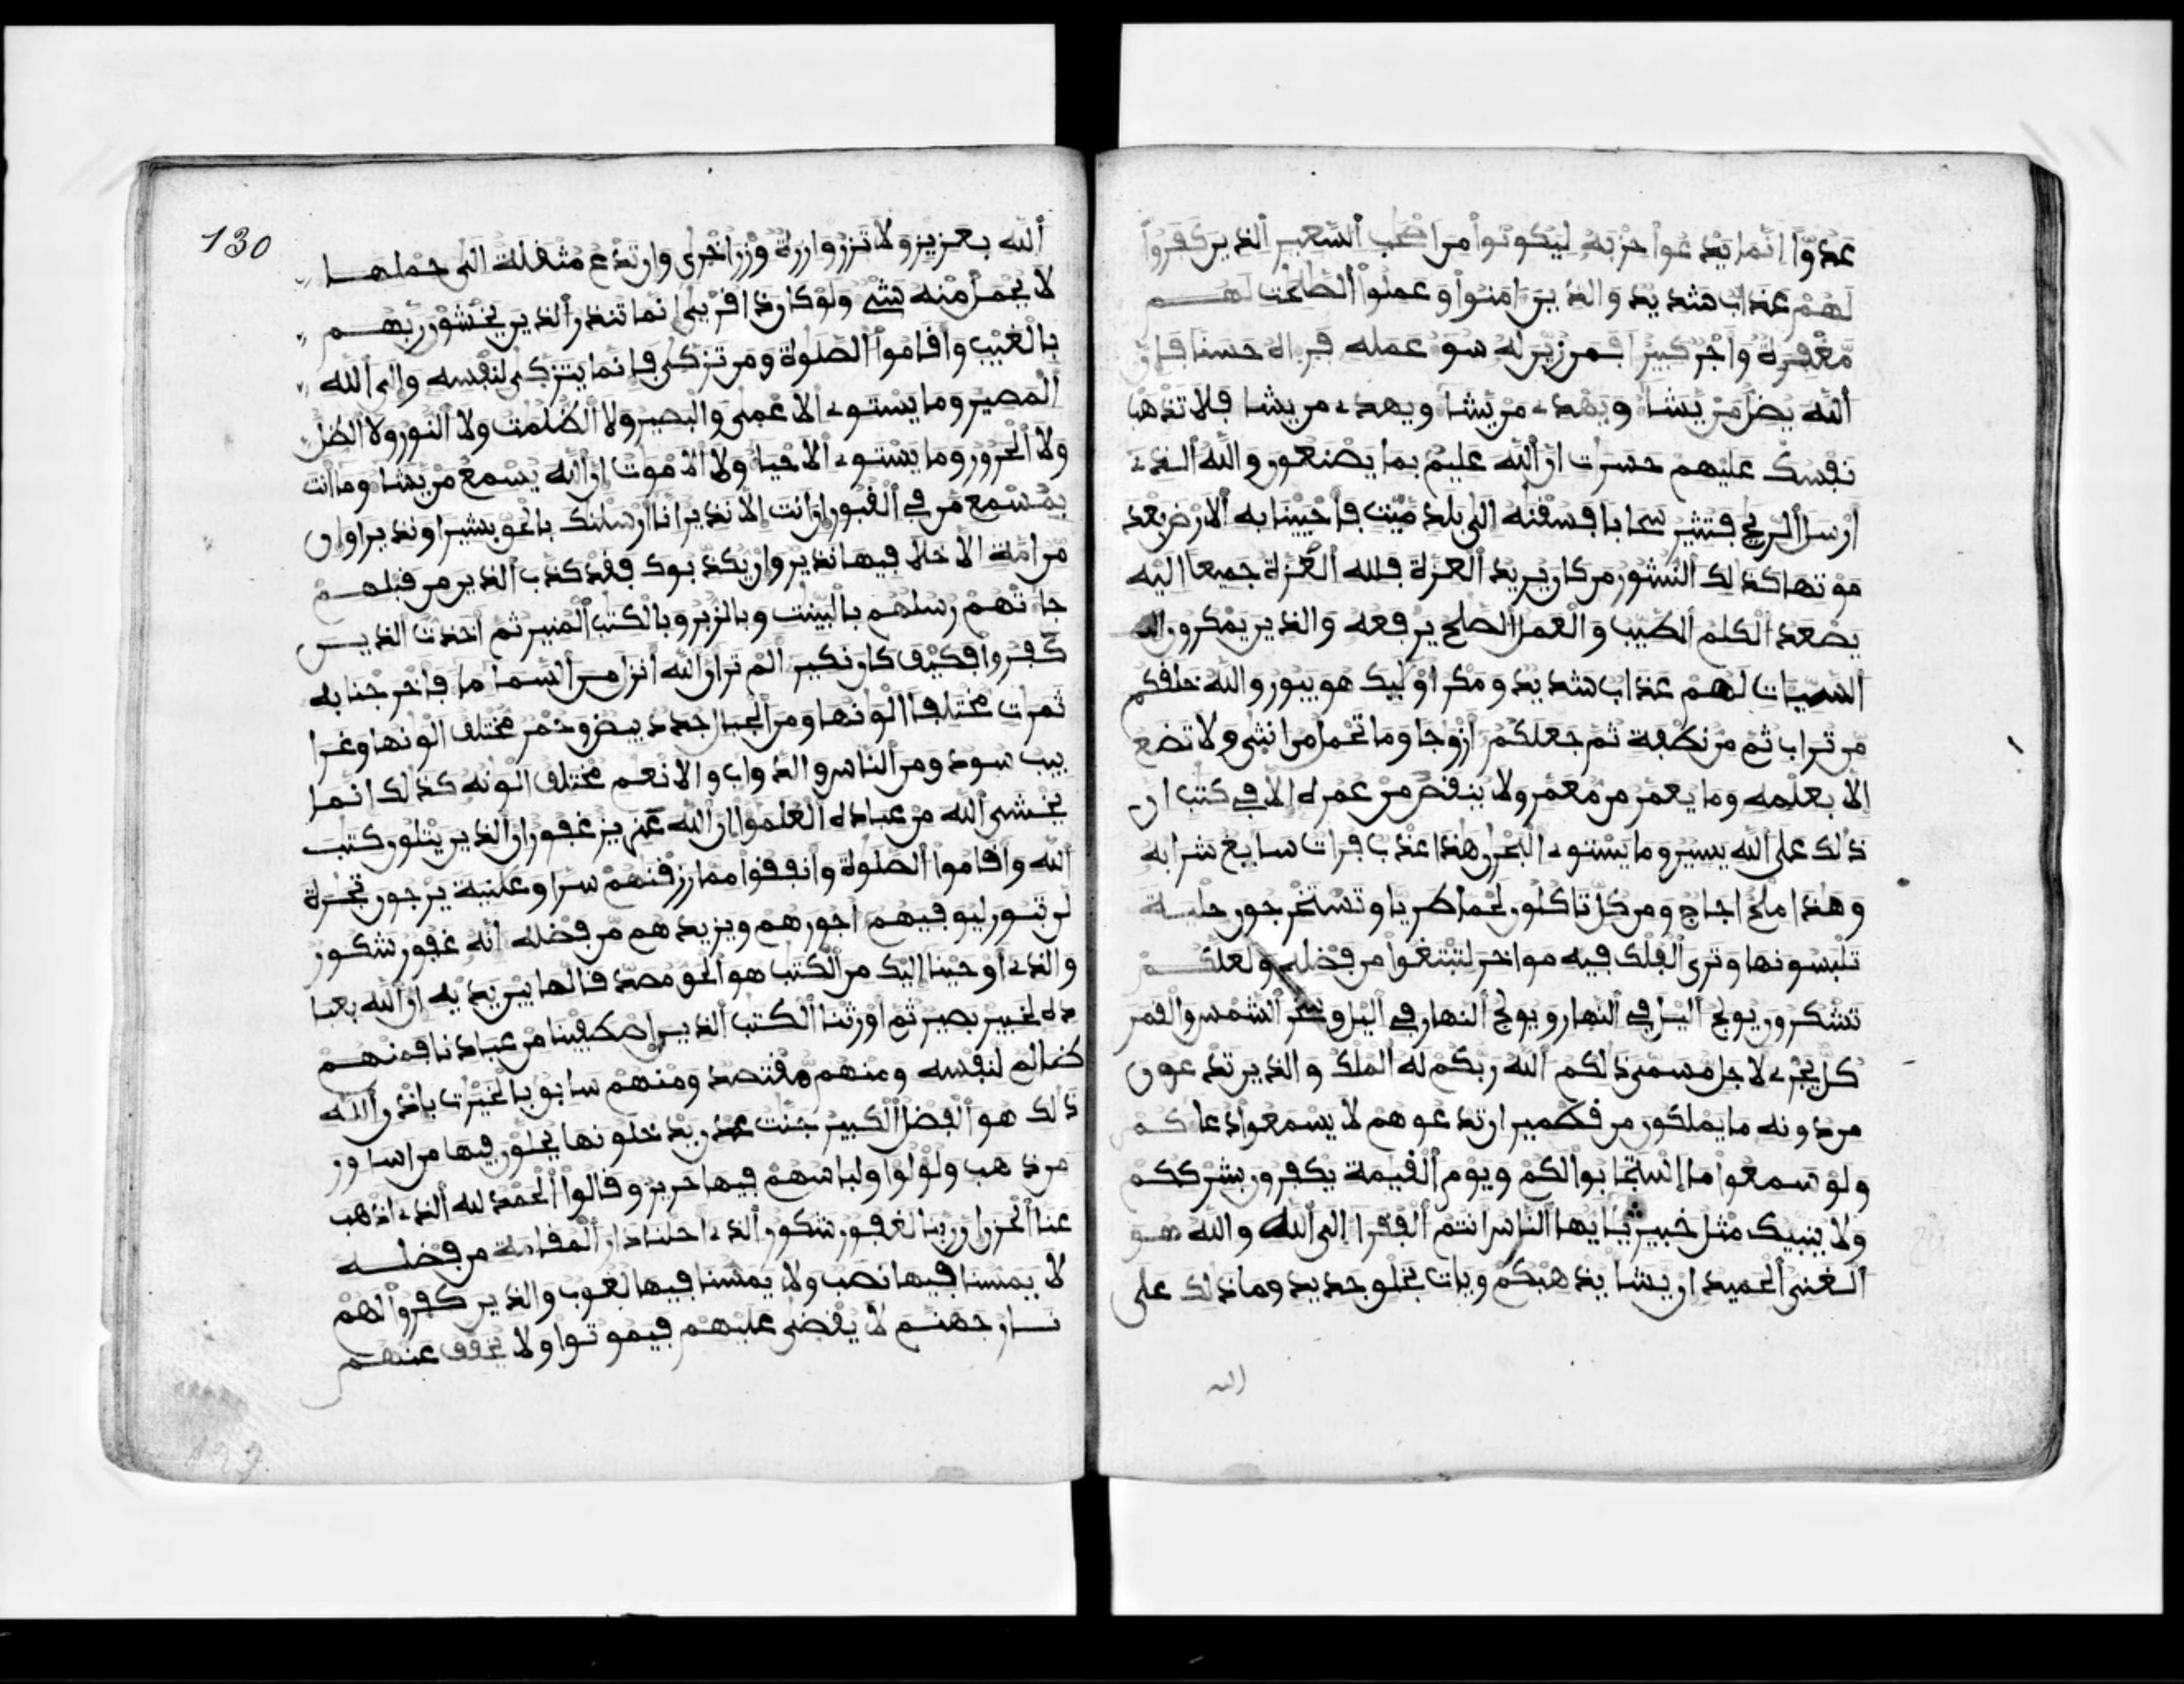 عدوا انما يدعوا حزبه ليكونوا من اصحب السعير الذين كفروا
لهم عذاب شديد والذين امنوا وعملوا الصلحت لهم
مغفرة واجر كبير افمن زين له سوء عمله فراه حسنا فان
الله يضل من يشا ويهدي من يشا ويهدي من يشا فلا تذهب
نفسك عليهم حسرات ان الله عليم بما يصنعون والله الذي
ارسل الريح فتثير سحابا فسقنه الى بلد ميت فاحيينا به الارض بعد
موتها كذلك النشور من كان يريد العزة فلله العزة جميعا اليه
يصعد الكلم الطيب والعمل الصلح يرفعه والذين يمكرون
السيات لهم عذاب شديد ومكر اوليك هو يبور والله خلقكم
من تراب ثم من نطفة ثم جعلكم ازوجا وما تحمل من انثى ولا تضع
الا بعلمه وما يعمر من معمر ولا ينقص من عمره الا في كتب ان
ذلك على الله يسير وما يستوي البحرن هذا عذب فرات سايغ شرابه
وهذا ملح اجاج ومن كل تاكلون لحما طريا وتستخرجون حلية
تلبسونها وترى الفلك فيه مواخر لتبتغوا من فضله ولعلكم
تشكرون يولج اليل في النهار ويولج النهار في اليل وسخر الشمس والقمر
كل يجري لاجل مسمى ذلكم الله ربكم له الملك والذين تدعون
من دونه ما يملكون من قطمير ان تدعوهم لا يسمعوا دعاكم
ولو سمعوا ما استجابوا لكم ويوم القيمة يكفرون بشرككم
ولا ينبيك مثل خبير يايها الناس انتم الفقرا الى الله والله هو
الغني الحميد ان يشا يذهبكم ويات بخلق جديد وما ذلك على
الله
130
الله بعزيز ولا تزر وازرة وزر اخرى وان تدع مثقلة الى حملها
لا يحمل منه شي ولو كان ذا قربى انما تنذر الذين يخشون ربهم
بالغيب واقاموا الصلوة ومن تزكى فانما يتزكى لنفسه والى الله
المصير وما يستوي الاعمى والبصير ولا الظلمت ولا النور ولا الظل
ولا الحرور وما يستوي الاحيا ولا الاموت ان الله يسمع من يشا وما انت
بمسمع من في القبور ان انت الا نذير انا ارسلنك بالحق بشيرا ونذيرا وان
من امة الا خلا فيها نذير وان يكذبوك فقد كذب الذين من قبلهم
جاتهم رسلهم بالبينت وبالزبر وبالكتب المنير ثم اخذت الذين
كفروا فكيف كان نكير الم تر ان الله انزل من السما ما فاخرجنا به
ثمرات مختلفا الونها ومن الجبال جدد بيض وحمر مختلف الونها وغرا
بيب سود ومن الناس والدواب والانعم مختلف الونه كذلك انما
يخشى الله من عباده العلموا ان الله عزيز غفور ان الذين يتلون كتب
الله واقاموا الصلوة وانفقوا مما رزقنهم سرا وعلنية يرجون تجرة
لن تبور ليوفيهم اجورهم ويزيدهم من فضله انه غفور شكور
والذي اوحينا اليك من الكتب هو الحق مصدقا لما بين يديه ان الله بعبا
ده لخبير بصير ثم اورثنا الكتب الذين اصطفينا من عبادنا فمنهم
ظالم لنفسه ومنهم مقتصد ومنهم سابق بالخيرت باذن الله
ذلك هو الفضل الكبير جنت عدن يدخلونها يحلون فيها من اساور
من ذهب ولؤلوا ولباسهم فيها حرير وقالوا الحمد لله الذي اذهب
عنا الحزن ان ربنا لغفور شكور الذي احلنا دار المقامة من فضله
لا يمسنا فيها نصب ولا يمسنا فيها لغوب والذين كفروا لهم
نار جهنم لا يقضى عليهم فيموتوا ولا يخفف عنهم